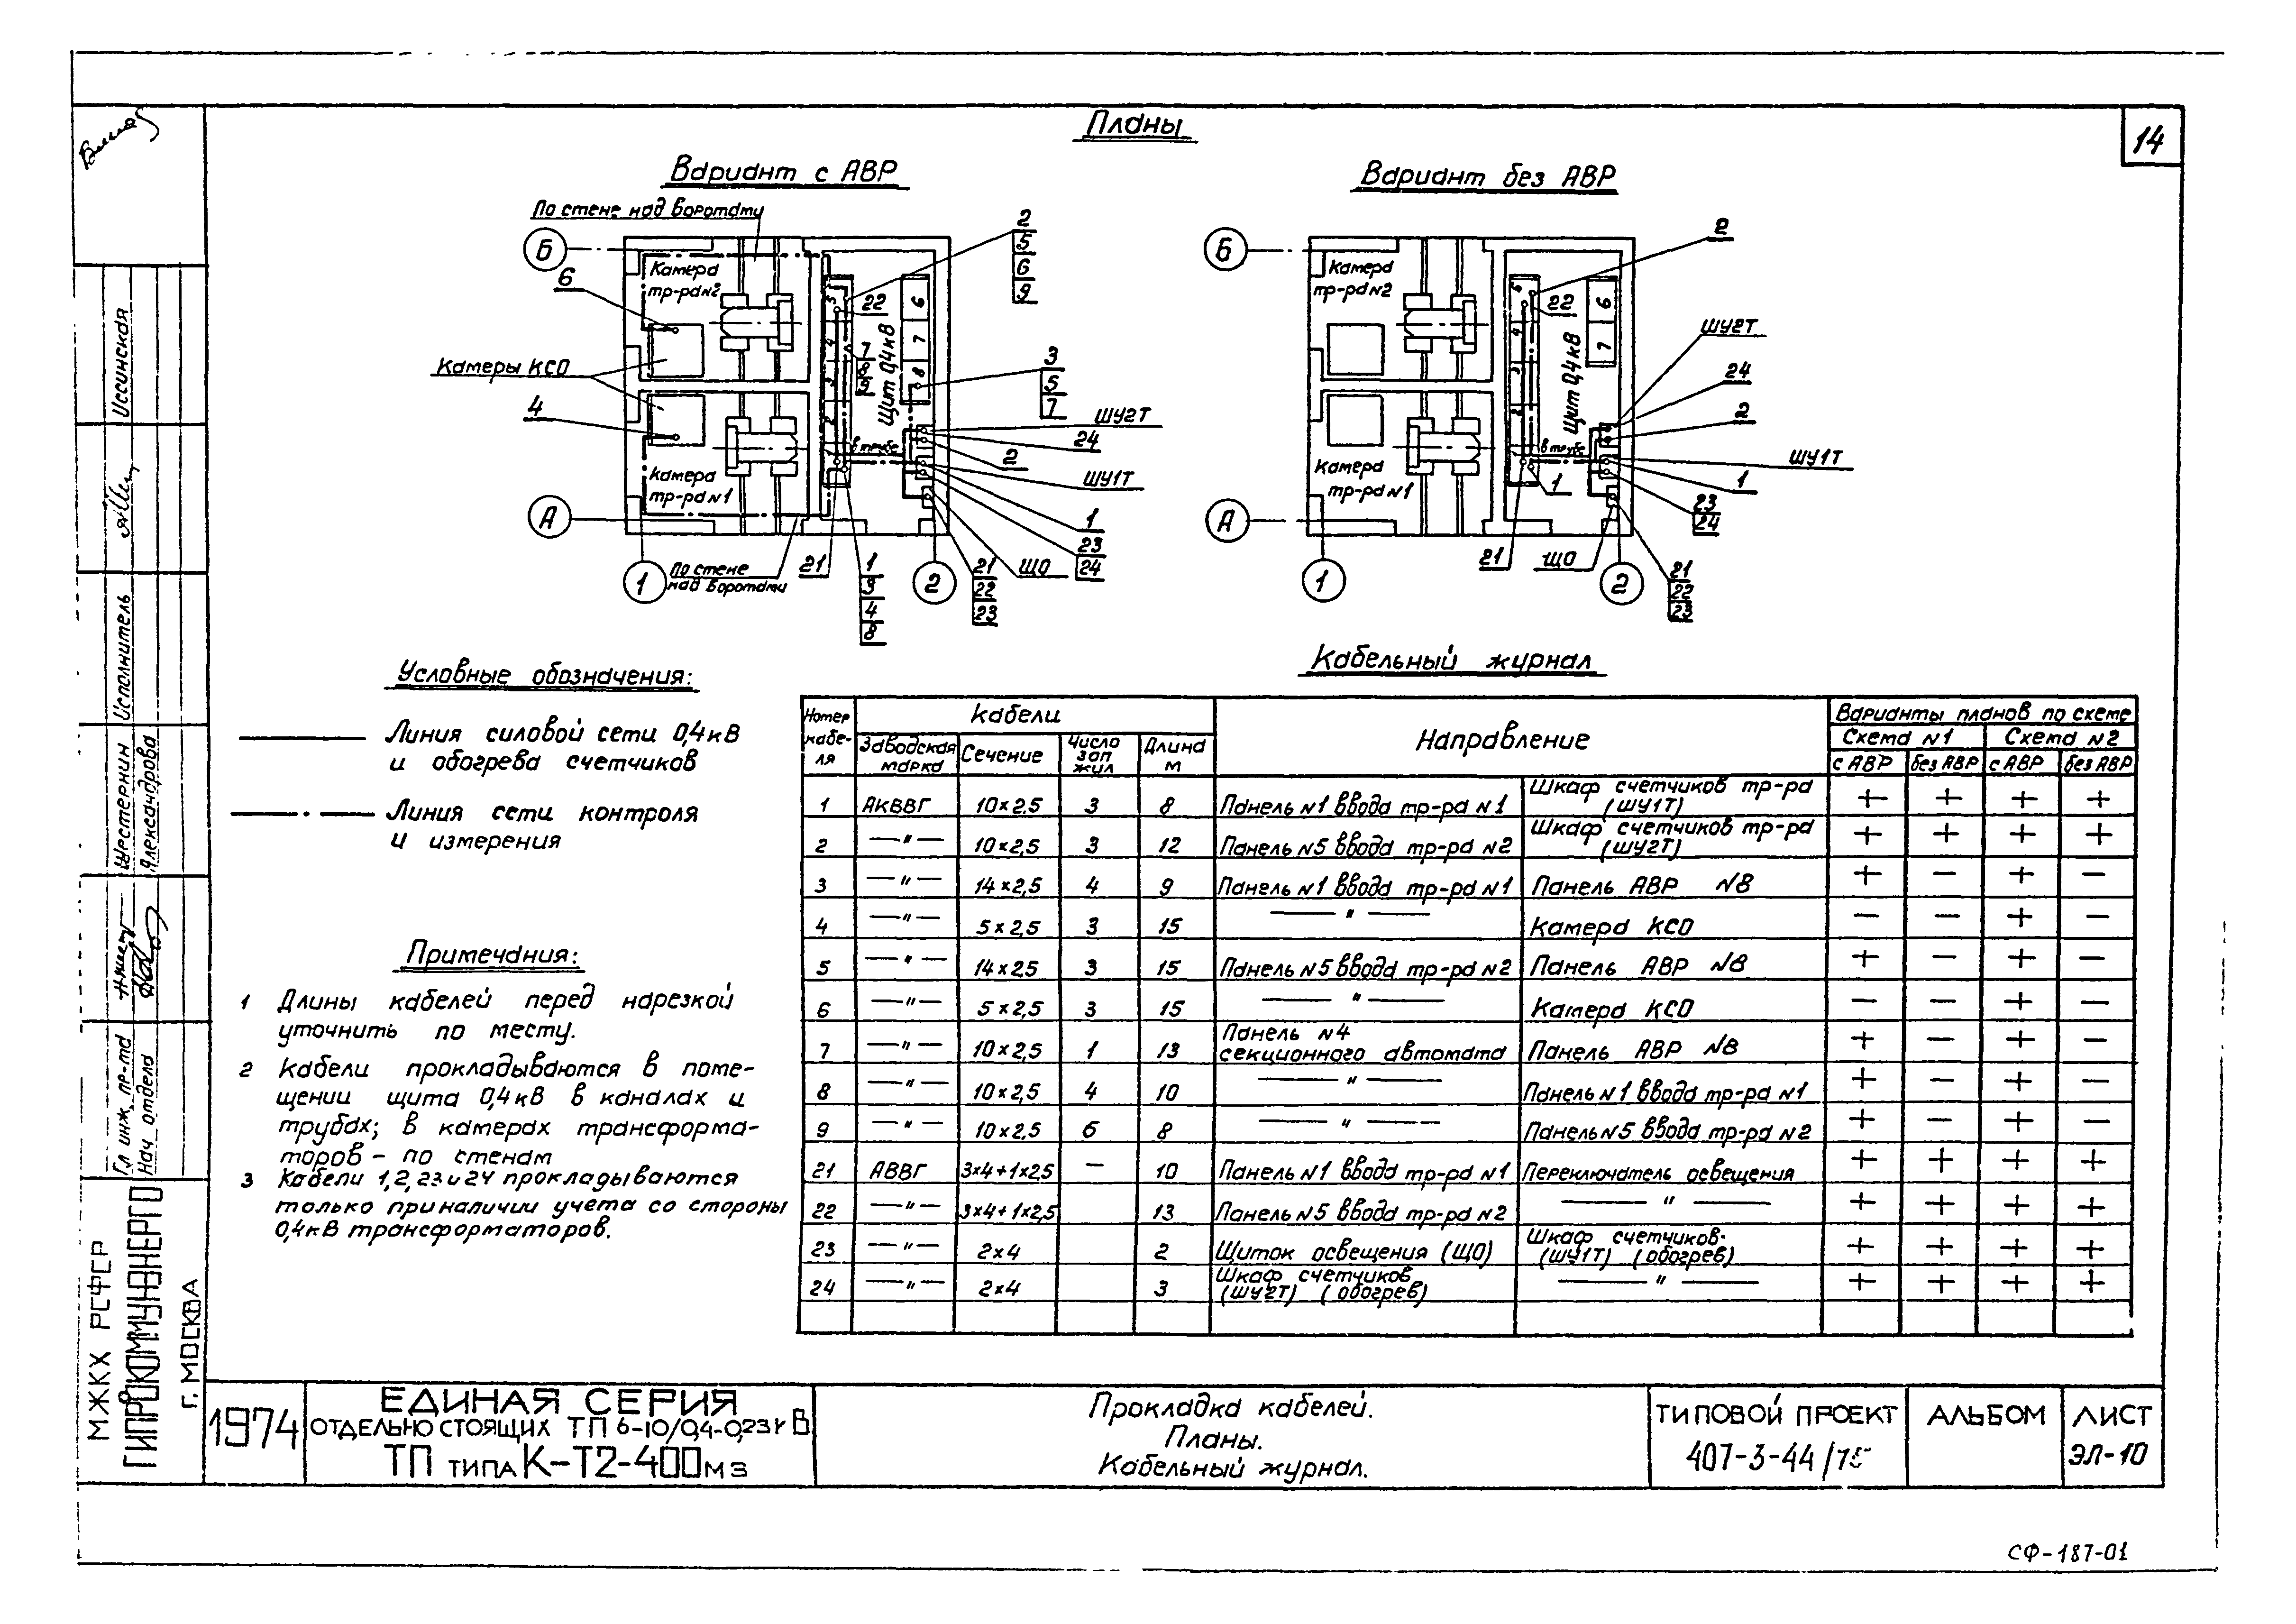 14
Планы
Вариант с АВР
По стене над воротами
Б
Камера
тр-ра №2
6
Камеры КСО
4
Камера
тр-ра №1
А
1
По стене
над воротами
21
1
3
4
8
2
5
6
9
22
5
4
3
2
7
8
9
Щит 0,4кВ
6
7
8
3
5
7
в трубе
ШУ2Т
24
2
ШУ1Т
1
23
24
ЩО
21
22
23
2
Вариант без АВР
Б
Камера
тр-ра №2
Камера
тр-ра №1
А
1
2
22
5
4
3
2
Щит 0,4кВ
6
7
в трубе
ШУ2Т
24
2
ШУ1Т
1
1
23
24
21
ЩО
21
22
23
2
Условные обозначения:
Линия силовой сети 0,4кВ
и обогрева счетчиков
Линия сети контроля
и измерения
Примечания:
1 Длины кабелей перед нарезкой
уточнить по месту.
2 Кабели прокладываются в поме-
щении щита 0,4кВ в каналах и
трубах; в камерах трансформа-
торов - по стенам
3 Кабели 1,2,23и24 прокладываются
только при наличии учета со стороны
0,4кВ трансформаторов.
Кабельный журнал
Номер кабе-ля | Кабели | Направление | Варианты планов по схеме
Заводская марка | Сечение | Число зап жил | Длина м | Схема №1 | Схема №2
с АВР | без АВР | с АВР | без АВР
1 | АКВВГ | 10×2,5 | 3 | 8 | Панель №1 ввода тр-ра №1 | Шкаф счетчиков тр-ра (ШУ1Т) | + | + | + | +
2 | —"— | 10×2,5 | 3 | 12 | Панель №5 ввода тр-ра №2 | Шкаф счетчиков тр-ра (ШУ2Т) | + | + | + | +
3 | —"— | 14×2,5 | 4 | 9 | Панель №1 ввода тр-ра №1 | Панель АВР №8 | + | — | + | —
4 | —"— | 5×2,5 | 3 | 15 | —"— | Камера КСО | — | — | + | —
5 | —"— | 14×2,5 | 3 | 15 | Панель №5 ввода тр-ра №2 | Панель АВР №8 | + | — | + | —
6 | —"— | 5×2,5 | 3 | 15 | —"— | Камера КСО | — | — | + | —
7 | —"— | 10×2,5 | 1 | 13 | Панель №4 секционного автомата | Панель АВР №8 | + | — | + | —
8 | —"— | 10×2,5 | 4 | 10 | —"— | Панель №1 ввода тр-ра №1 | + | — | + | —
9 | —"— | 10×2,5 | 6 | 8 | —"— | Панель №5 ввода тр-ра №2 | + | — | + | —
21 | АВВГ | 3×4+1×2,5 | — | 10 | Панель №1 ввода тр-ра №1 | Переключатель освещения | + | + | + | +
22 | —"— | 3×4+1×2,5 | 13 | Панель №5 ввода тр-ра №2 | —"— | + | + | + | +
23 | —"— | 2×4 | 2 | Щиток освещения (ЩО) | Шкаф счетчиков (ШУ1Т) (обогрев) | + | + | + | +
24 | —"— | 2×4 | 3 | Шкаф счетчиков (ШУ2Т) (обогрев) | —"— | + | + | + | +
Иссинская
Исполнитель
Шерстернин
Александрова
Гл инж пр-та
Нач отдела
МЖКХ РСФСР
ГИПРОКОММУНЭНЕРГО
Г. МОСКВА
1974
ЕДИНАЯ СЕРИЯ
ОТДЕЛЬНО СТОЯЩИХ ТП 6-10/0,4-0,23кВ
ТП ТИПА К-Т2-400 м3
Прокладка кабелей.
Планы.
Кабельный журнал.
ТИПОВОЙ ПРОЕКТ
407-3-44/75
АЛЬБОМ
ЛИСТ
ЭЛ-10
СФ-187-01